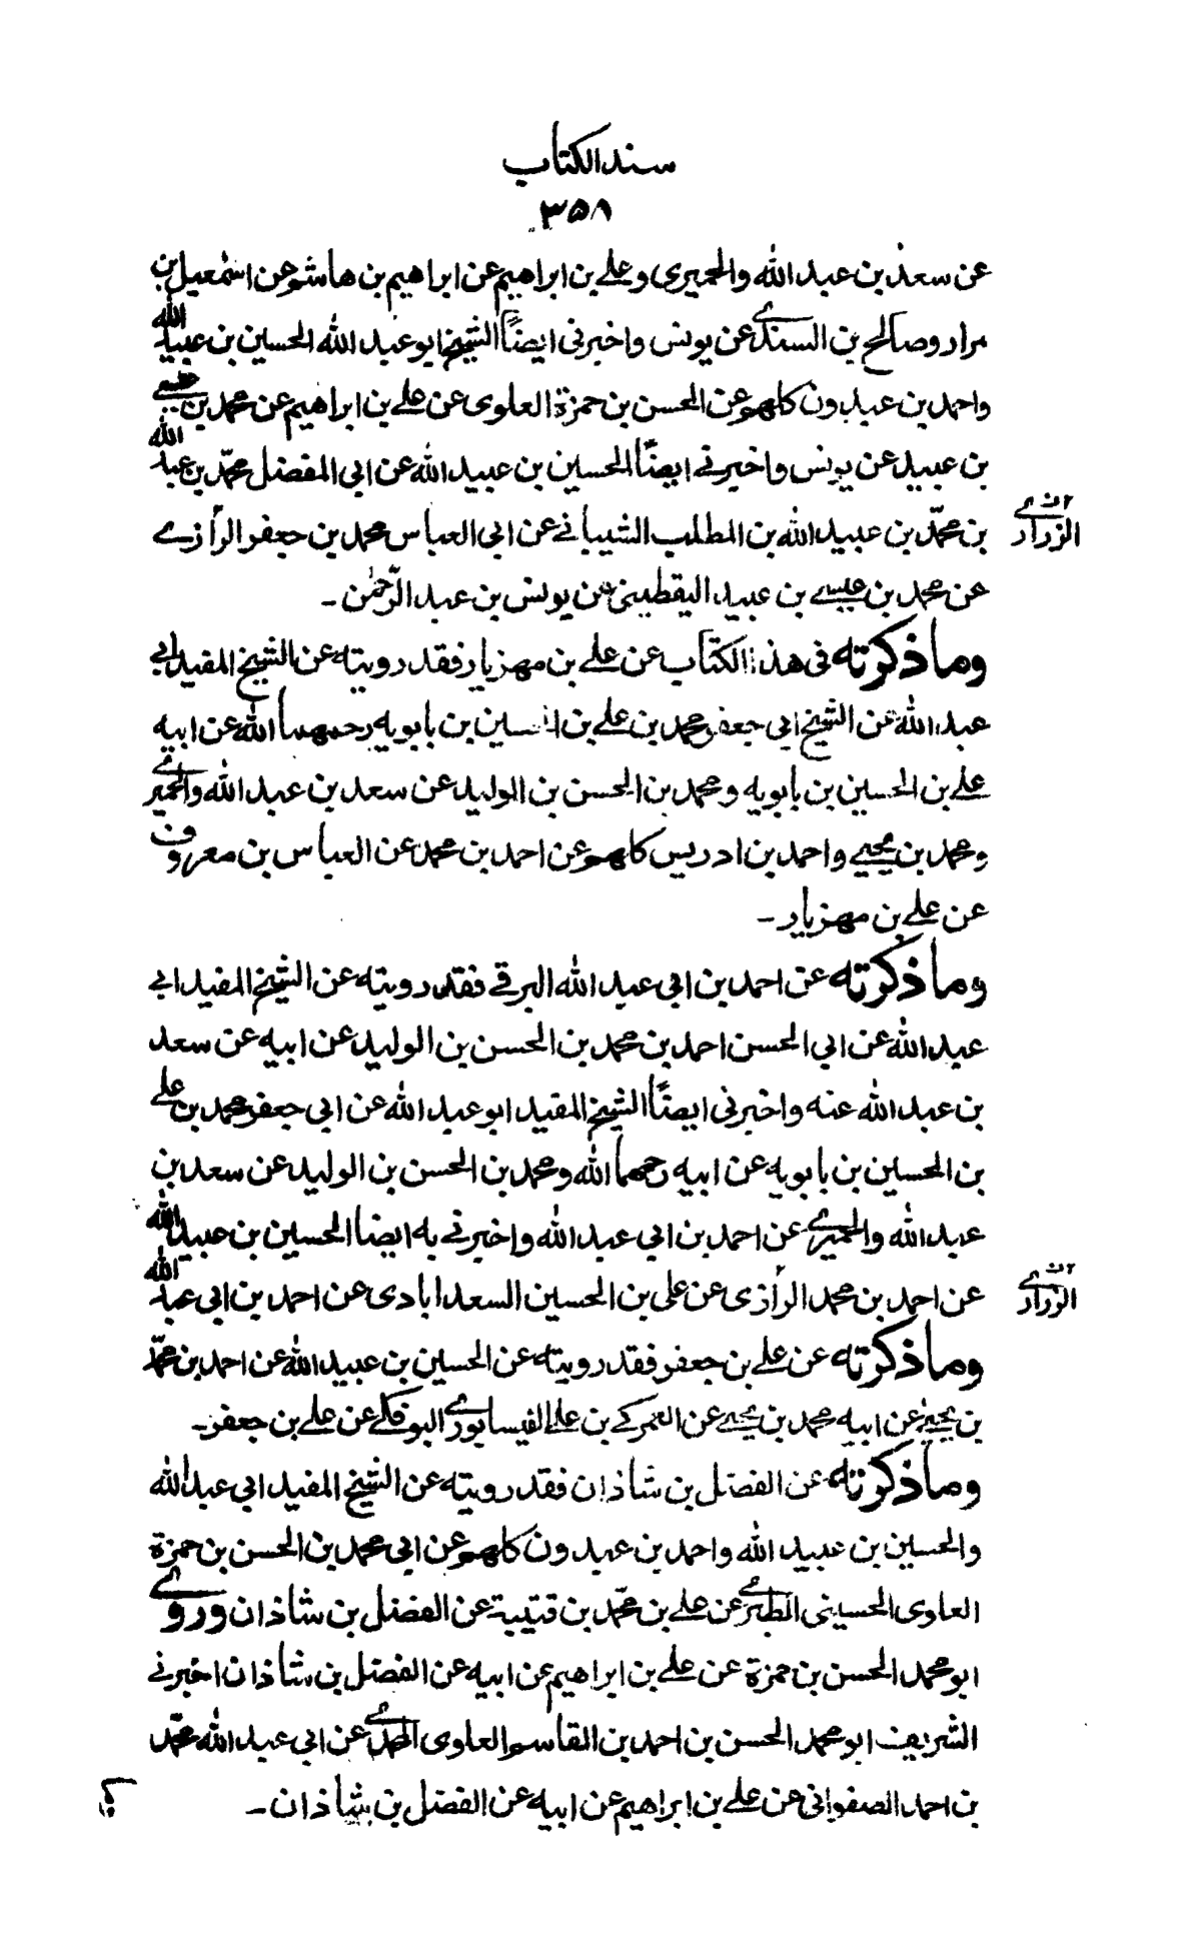 سند الكتاب
٣٥٨
عن سعد بن عبد الله والحميرى وعلى بن ابراهيم عن ابراهيم بن هاشم عن اسمعيل بن
مرار وصالح بن السندى عن يونس واخبرنى ايضًا الشيخ ابو عبد الله الحسين بن عبيد الله
واحمد بن عبدون كلهم عن الحسن بن حمزة العلوى عن على بن ابراهيم عن محمد بن عيسى
بن عبيد عن يونس واخبرنى ايضًا الحسين بن عبيد الله عن ابى المفضل محمّد بن عبد الله
بن محمّد بن عبيد الله بن المطلب الشيبانى عن ابى العباس محمد بن جعفر الرازى
الزراد
عن محمد بن عيسى بن عبيد اليقطينى عن يونس بن عبد الرّحمٰن -
وما ذكرته فى هذا الكتاب عن على بن مهزيار فقد رويته عن الشيخ المفيد ابى
عبد الله عن الشيخ ابى جعفر محمد بن على بن الحسين بن بابويه رحمهما الله عن ابيه
على بن الحسين بن بابويه ومحمد بن الحسن بن الوليد عن سعد بن عبد الله والحميرى
ومحمد بن يحيى واحمد بن ادريس كلهم عن احمد بن محمد عن العباس بن معروف
عن على بن مهزيار -
وما ذكرته عن احمد بن ابى عبد الله البرقى فقد رويته عن الشيخ المفيد ابى
عبد الله عن ابى الحسن احمد بن محمد بن الحسن بن الوليد عن ابيه عن سعد
بن عبد الله عنه واخبرنى ايضًا الشيخ المفيد ابو عبد الله عن ابى جعفر محمد بن على
بن الحسين بن بابويه عن ابيه رحمهما الله ومحمد بن الحسن بن الوليد عن سعد بن
عبد الله والحميرى عن احمد بن ابى عبد الله واخبرنى به ايضا الحسين بن عبيد الله
عن احمد بن محمد الرازى عن على بن الحسين السعدابادى عن احمد بن ابى عبد الله
الزراد
وما ذكرته عن على بن جعفر فقد رويته عن الحسين بن عبيد الله عن احمد بن محمّد
بن يحيى عن ابيه محمد بن يحيى عن العمركى بن على النيسابورى البوفكى عن على بن جعفر -
وما ذكرته عن الفضل بن شاذان فقد رويته عن الشيخ المفيد ابى عبد الله
والحسين بن عبيد الله واحمد بن عبدون كلهم عن ابى محمد بن الحسن بن حمزة
العلوى الحسينى الطبرى عن على بن محمّد بن قتيبة عن الفضل بن شاذان وروى
ابو محمد الحسن بن حمزة عن على بن ابراهيم عن ابيه عن الفضل بن شاذان اخبرنى
الشريف ابو محمد الحسن بن احمد بن القاسم العلوى المحمدى عن ابى عبد الله محمّد
بن احمد الصفوانى عن على بن ابراهيم عن ابيه عن الفضل بن شاذان -